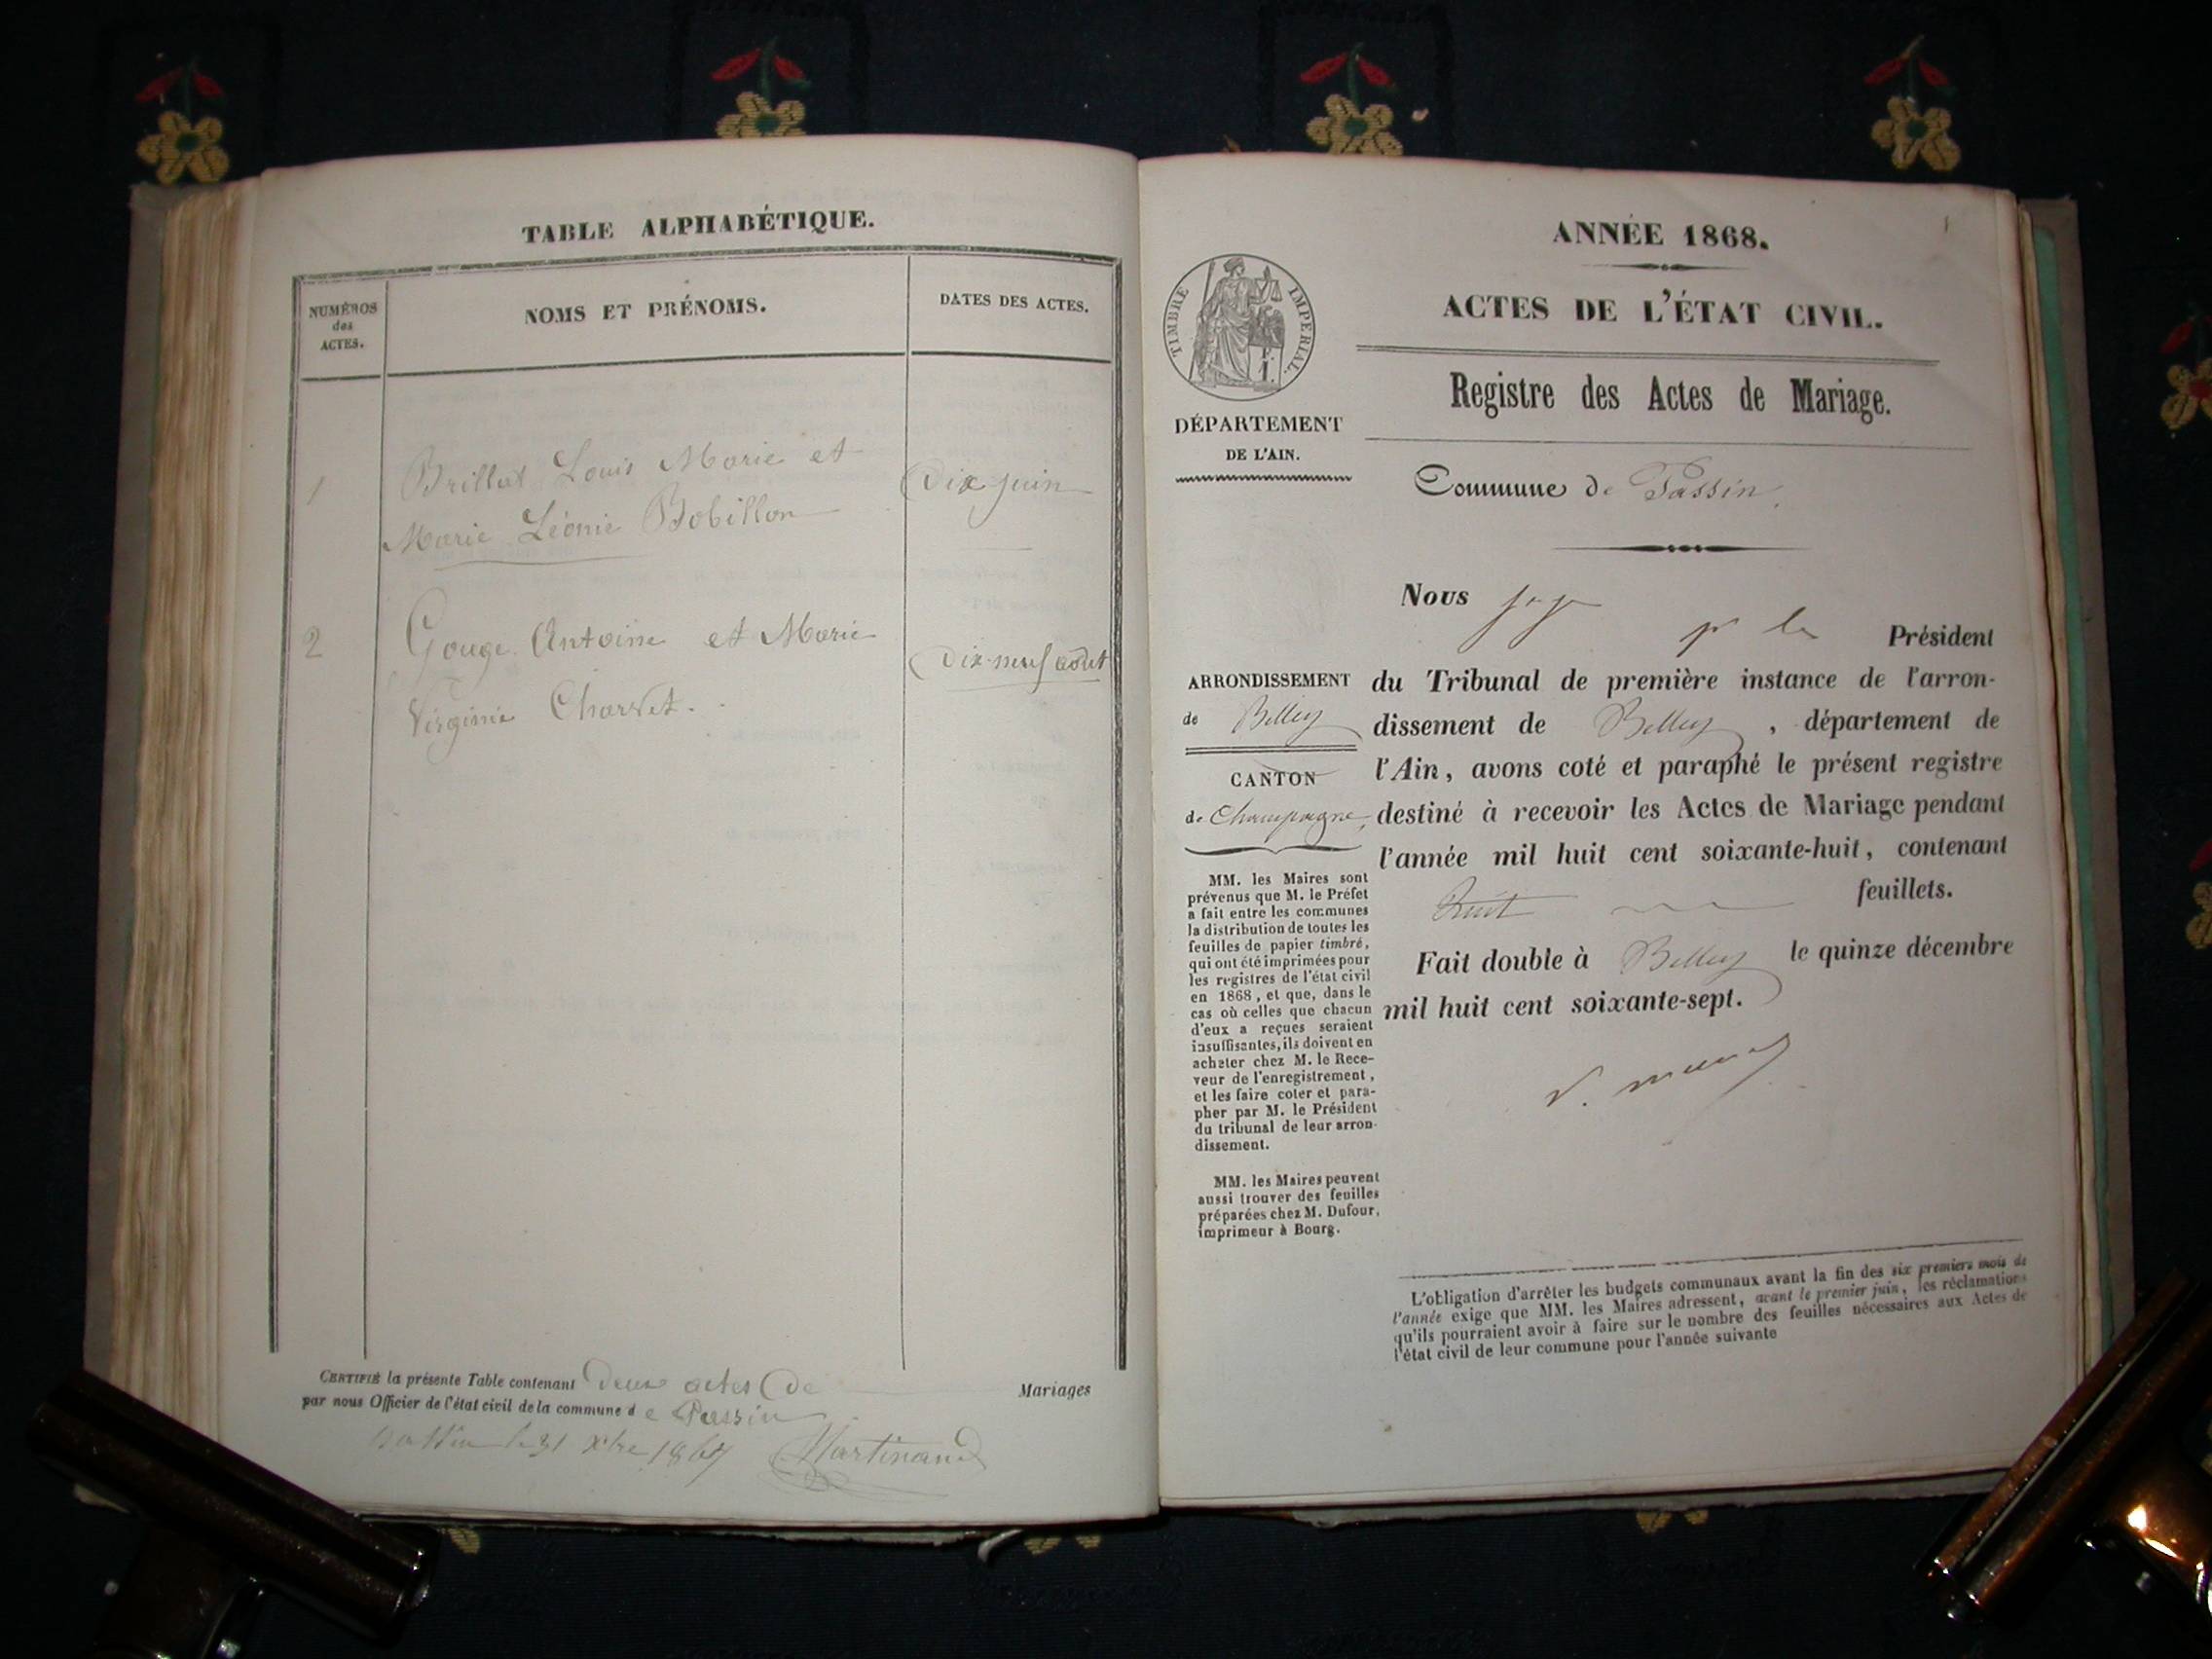 TABLE ALPHABÉTIQUE.
NUMÉROS
des
ACTES.
NOMS ET PRÉNOMS.
DATES DES ACTES.
1
Brillat Louis Marie et
Marie Léonie Bobillon
Dix juin
2
Gouge Antoine et Marie
Virginie Charvet.
Dix-neuf août
CERTIFIÉ la présente Table contenant Deux actes de Mariages
par nous Officier de l'état civil de la commune de Passin
Passin le 31 Xbre 1867 Martinand
ANNÉE 1868.
ACTES DE L'ÉTAT CIVIL.
Registre des Actes de Mariage.
TIMBRE IMPÉRIAL.
DÉPARTEMENT
DE L'AIN.
Commune de Passin
ARRONDISSEMENT
de Belley
CANTON
de Champagne
MM. les Maires sont
prévenus que M. le Préfet
a fait entre les communes
la distribution de toutes les
feuilles de papier timbré,
qui ont été imprimées pour
les registres de l'état civil
en 1868, et que, dans le
cas où celles que chacun
d'eux a reçues seraient
insuffisantes, ils doivent en
acheter chez M. le Rece-
veur de l'enregistrement,
et les faire coter et para-
pher par M. le Président
du tribunal de leur arron-
dissement.
MM. les Maires peuvent
aussi trouver des feuilles
préparées chez M. Dufour,
imprimeur à Bourg.
Nous juge
pr le Président
du Tribunal de première instance de l'arron-
dissement de Belley, département de
l'Ain, avons coté et paraphé le présent registre
destiné à recevoir les Actes de Mariage pendant
l'année mil huit cent soixante-huit, contenant
huit feuillets.
Fait double à Belley le quinze décembre
mil huit cent soixante-sept.
L'obligation d'arrêter les budgets communaux avant la fin des six premiers mois de
l'année exige que MM. les Maires adressent, avant le premier juin, les réclamations
qu'ils pourraient avoir à faire sur le nombre des feuilles nécessaires aux Actes de
l'état civil de leur commune pour l'année suivante